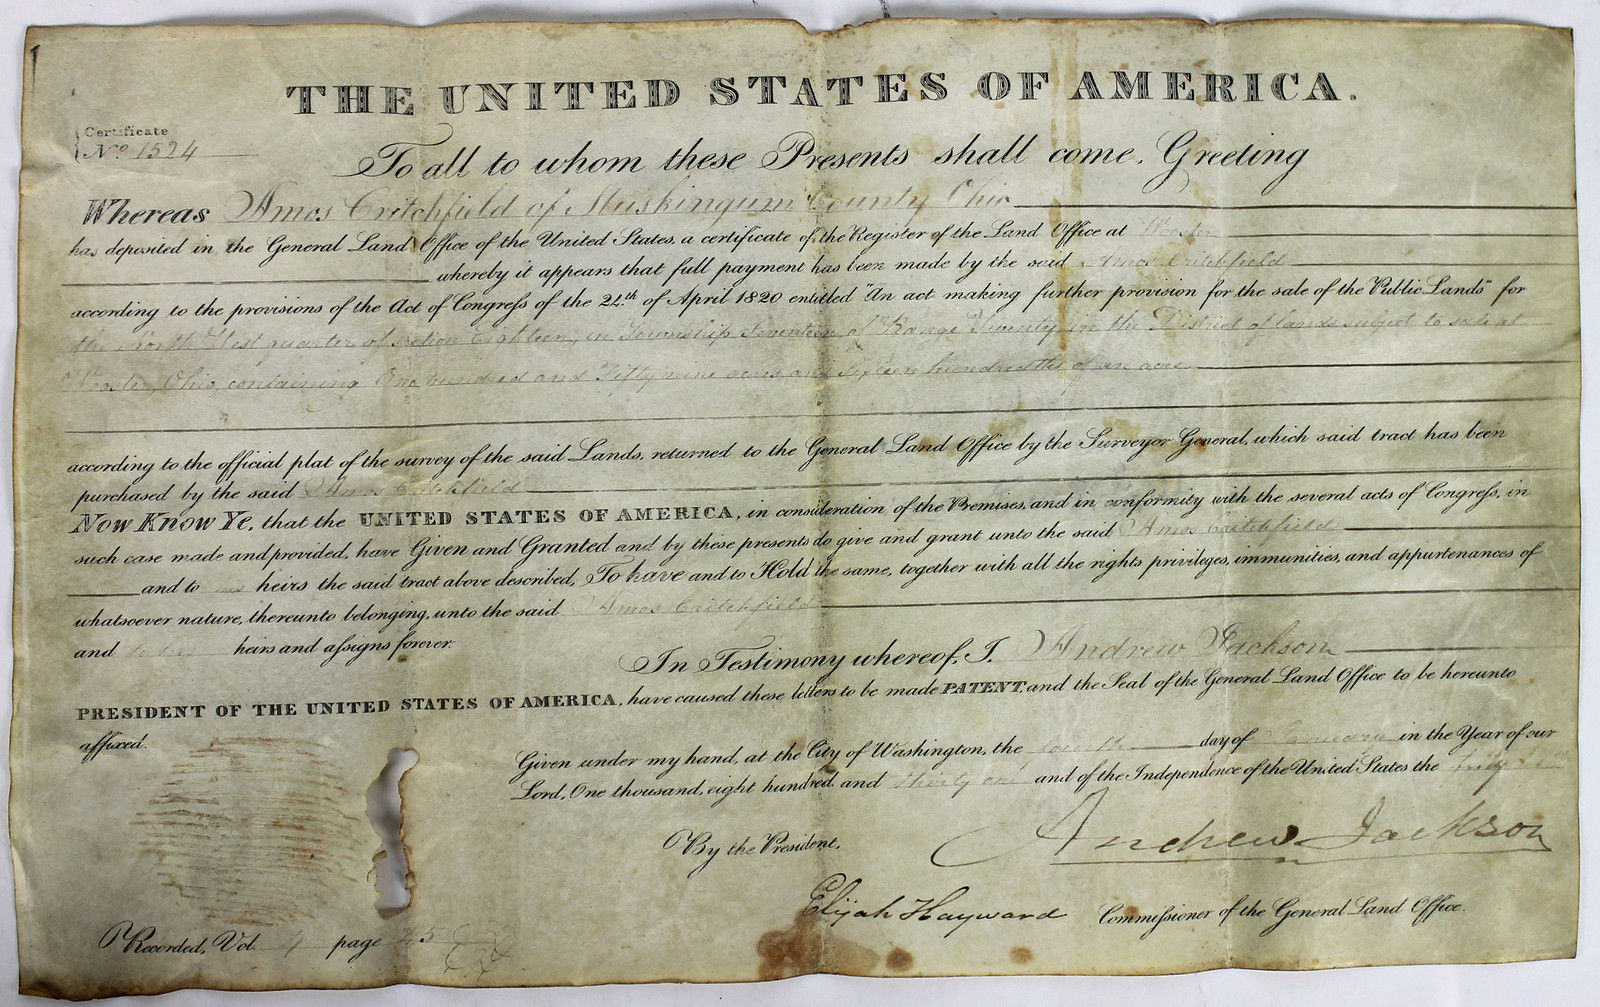 THE UNITED STATES OF AMERICA.
Certificate
No. 1524
To all to whom these Presents shall come, Greeting
Whereas Amos Critchfield of Muskingum County Ohio
has deposited in the General Land Office of the United States, a certificate of the Register of the Land Office at Wooster
whereby it appears that full payment has been made by the said Amos Critchfield
according to the provisions of the Act of Congress of the 24th of April 1820 entitled "An act making further provision for the sale of the Public Lands" for
the North West quarter of section Eighteen, in Township Seventeen of Range Twenty in the District of lands subject to sale at
Wooster, Ohio, containing One hundred and Fifty nine acres and sixteen hundredths of an acre
according to the official plat of the survey of the said Lands, returned to the General Land Office by the Surveyor General, which said tract has been
purchased by the said Amos Critchfield
Now Know Ye, that the UNITED STATES OF AMERICA, in consideration of the Premises, and in conformity with the several acts of Congress, in
such case made and provided, have Given and Granted and by these presents do give and grant unto the said Amos Critchfield
and to his heirs the said tract above described, To have and to Hold the same, together with all the rights privileges, immunities, and appurtenances of
whatsoever nature, thereunto belonging, unto the said Amos Critchfield
and to his heirs and assigns forever.
In Testimony whereof, I, Andrew Jackson
PRESIDENT OF THE UNITED STATES OF AMERICA, have caused these letters to be made PATENT, and the Seal of the General Land Office to be hereunto
affixed.
Given under my hand, at the City of Washington, the fourth day of January in the Year of our
Lord, One thousand, eight hundred and thirty one and of the Independence of the United States the fifty
Andrew Jackson
By the President,
Elijah Hayward Commissioner of the General Land Office.
Recorded, Vol. 9 page